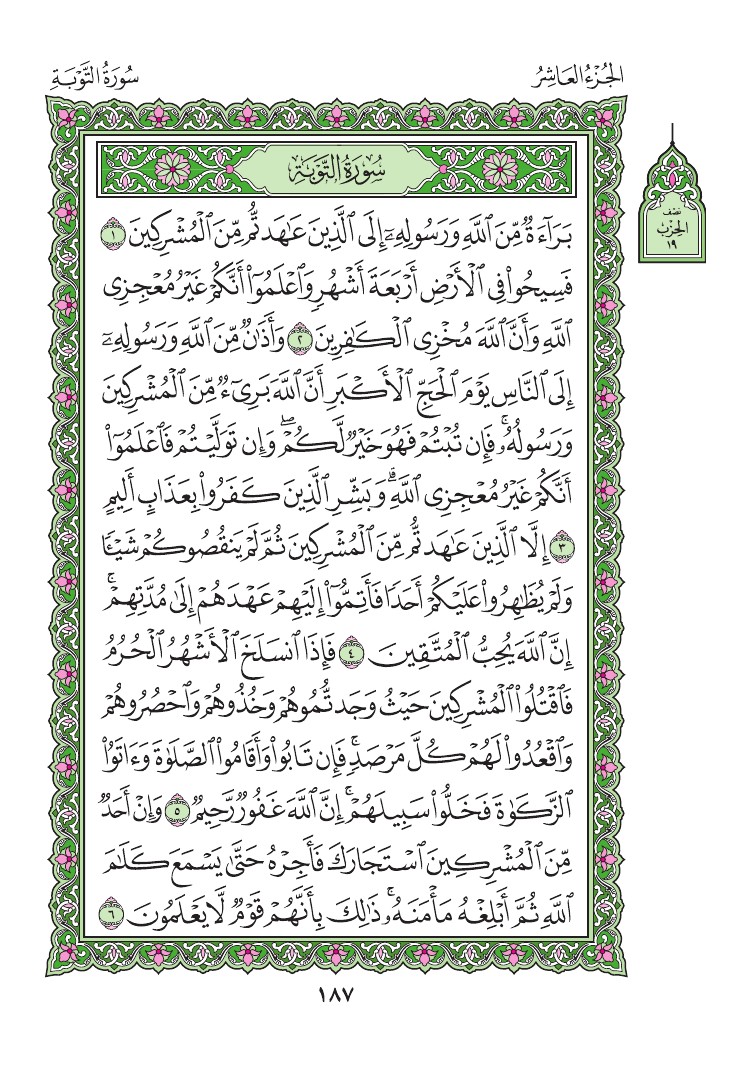 الجُزْءُ العَاشِرُ
سُورَةُ التَّوْبَةِ
سُورَةُ التَّوْبَةِ
نِصْف
الحِزْب
١٩
بَرَآءَةٌ مِّنَ ٱللَّهِ وَرَسُولِهِۦٓ إِلَى ٱلَّذِينَ عَٰهَدتُّم مِّنَ ٱلْمُشْرِكِينَ ١
فَسِيحُوا۟ فِى ٱلْأَرْضِ أَرْبَعَةَ أَشْهُرٍ وَٱعْلَمُوٓا۟ أَنَّكُمْ غَيْرُ مُعْجِزِى
ٱللَّهِ وَأَنَّ ٱللَّهَ مُخْزِى ٱلْكَٰفِرِينَ ٢ وَأَذَٰنٌ مِّنَ ٱللَّهِ وَرَسُولِهِۦٓ
إِلَى ٱلنَّاسِ يَوْمَ ٱلْحَجِّ ٱلْأَكْبَرِ أَنَّ ٱللَّهَ بَرِىٓءٌ مِّنَ ٱلْمُشْرِكِينَ
وَرَسُولُهُۥ ۚ فَإِن تُبْتُمْ فَهُوَ خَيْرٌ لَّكُمْ ۖ وَإِن تَوَلَّيْتُمْ فَٱعْلَمُوٓا۟
أَنَّكُمْ غَيْرُ مُعْجِزِى ٱللَّهِ ۗ وَبَشِّرِ ٱلَّذِينَ كَفَرُوا۟ بِعَذَابٍ أَلِيمٍ
٣ إِلَّا ٱلَّذِينَ عَٰهَدتُّم مِّنَ ٱلْمُشْرِكِينَ ثُمَّ لَمْ يَنقُصُوكُمْ شَيْـًٔا
وَلَمْ يُظَٰهِرُوا۟ عَلَيْكُمْ أَحَدًا فَأَتِمُّوٓا۟ إِلَيْهِمْ عَهْدَهُمْ إِلَىٰ مُدَّتِهِمْ ۚ
إِنَّ ٱللَّهَ يُحِبُّ ٱلْمُتَّقِينَ ٤ فَإِذَا ٱنسَلَخَ ٱلْأَشْهُرُ ٱلْحُرُمُ
فَٱقْتُلُوا۟ ٱلْمُشْرِكِينَ حَيْثُ وَجَدتُّمُوهُمْ وَخُذُوهُمْ وَٱحْصُرُوهُمْ
وَٱقْعُدُوا۟ لَهُمْ كُلَّ مَرْصَدٍ ۚ فَإِن تَابُوا۟ وَأَقَامُوا۟ ٱلصَّلَوٰةَ وَءَاتَوُا۟
ٱلزَّكَوٰةَ فَخَلُّوا۟ سَبِيلَهُمْ ۚ إِنَّ ٱللَّهَ غَفُورٌ رَّحِيمٌ ٥ وَإِنْ أَحَدٌ
مِّنَ ٱلْمُشْرِكِينَ ٱسْتَجَارَكَ فَأَجِرْهُ حَتَّىٰ يَسْمَعَ كَلَٰمَ
ٱللَّهِ ثُمَّ أَبْلِغْهُ مَأْمَنَهُۥ ۚ ذَٰلِكَ بِأَنَّهُمْ قَوْمٌ لَّا يَعْلَمُونَ ٦
١٨٧